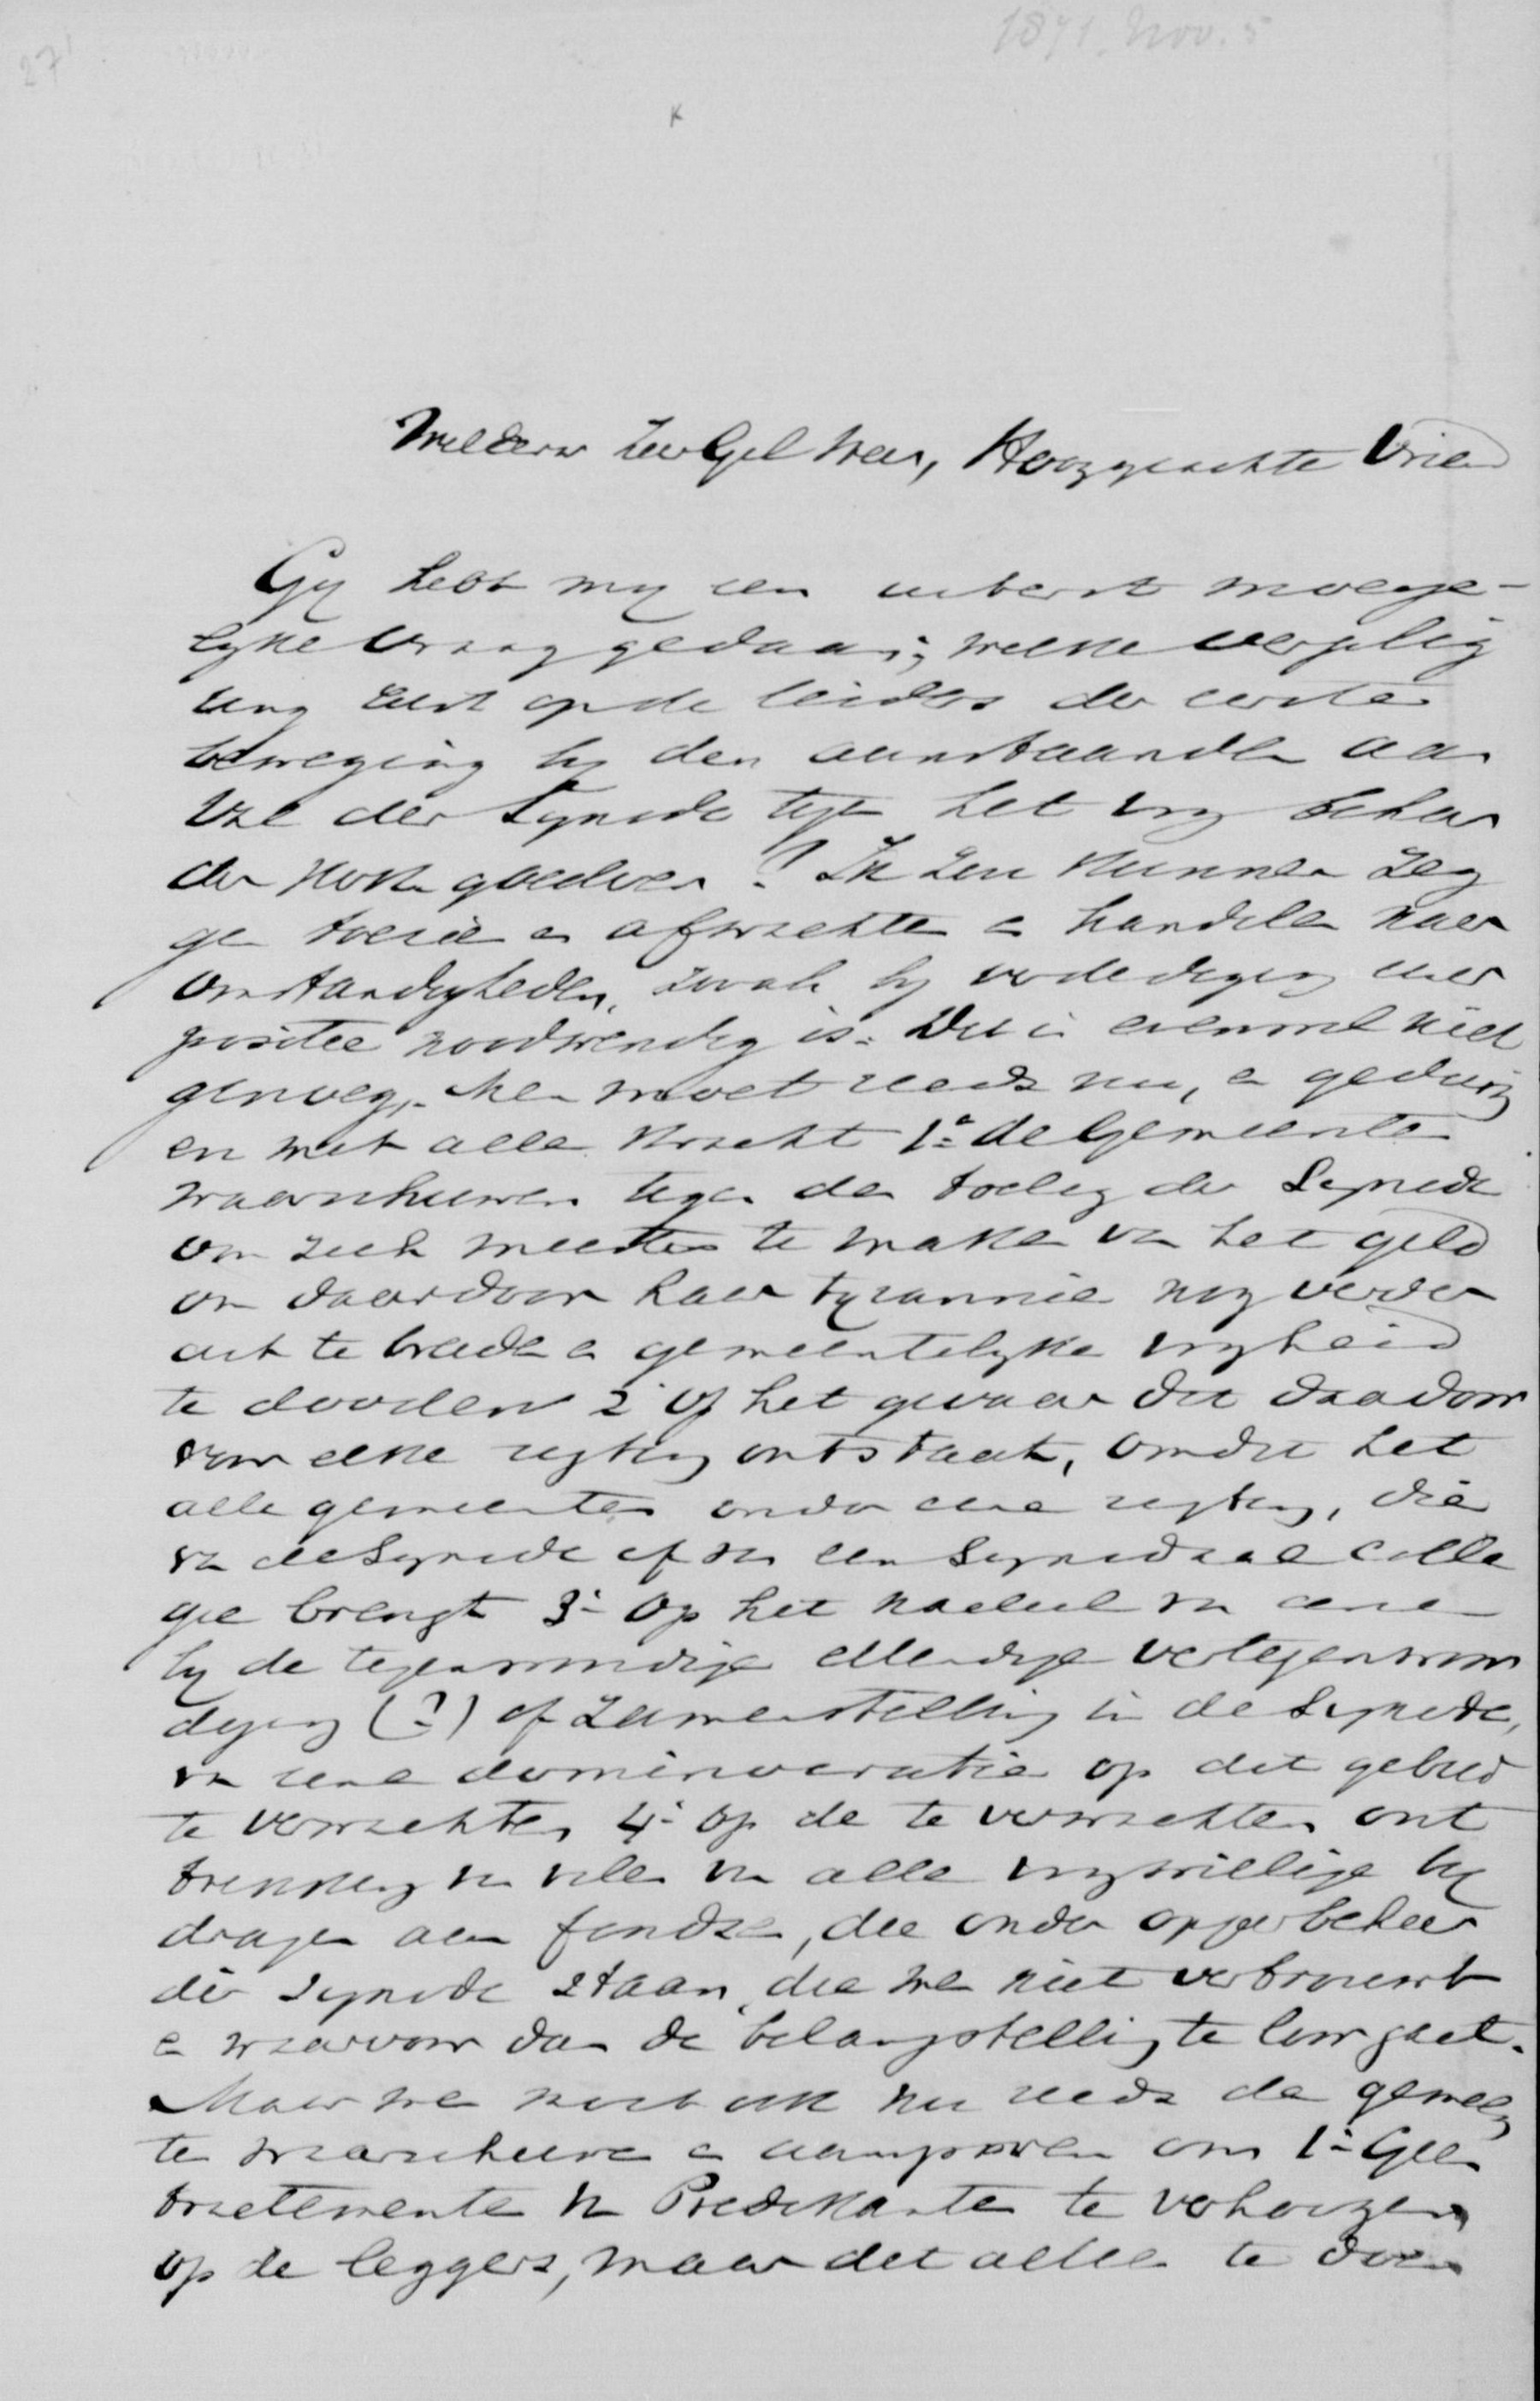 27
1871. Nov. 5
WelEerw ZeerGel Heer, Hooggeachte Vriend
Gy hebt my een uiterst moeye-
lyke vraag gedaan; welke verplig
ting rust op de leiders der eerste
beweging by den aanstaanden aan
val der Synode tegen het vry beheer
der kerk goederen? Ik zou kunnen zeg
ge toezien en afwachten en handelen naar
omstandigheden, zooals by verdediging ener
positie noodwendig is. Dit is evenwel niet
genoeg. Men moet reeds nu, en gedurig
en met alle kracht 1° de Gemeente
waarschuwen tegen den toeleg der Synode
om zich meester te maken van het geld
om daardoor haar tyrannie nog verder
uit te breiden en gemeentelyke vryheid
te dooden 2° op het gevaar dat daardoor
voor elke rigting ontstaat, omdat het
alle gemeenten onder eene rigting, die
van de Synode of van een Synodaal colle
gie brengt 3° op het nadeel van eene
by de tegenwoordige ellendige vertegenwoor
diging (?) of zamenstelling in de Synode,
van eene dominocratie op dit gebied
te verwachten 4° op de te verwachten ont
trekking van velen van alle vrywillige by
dragen aan fondsen, die onder opperbeheer
der Synode staan, die men niet vertrouwt
en waarvoor dan de belangstelling te loor gaat.
Maar men moet ook nu reeds de gemeen
te waarschuwen en aansporen om 1° Geen
tractementen van Predikanten te verhoogen
op de leggers, maar dit alleen te doen